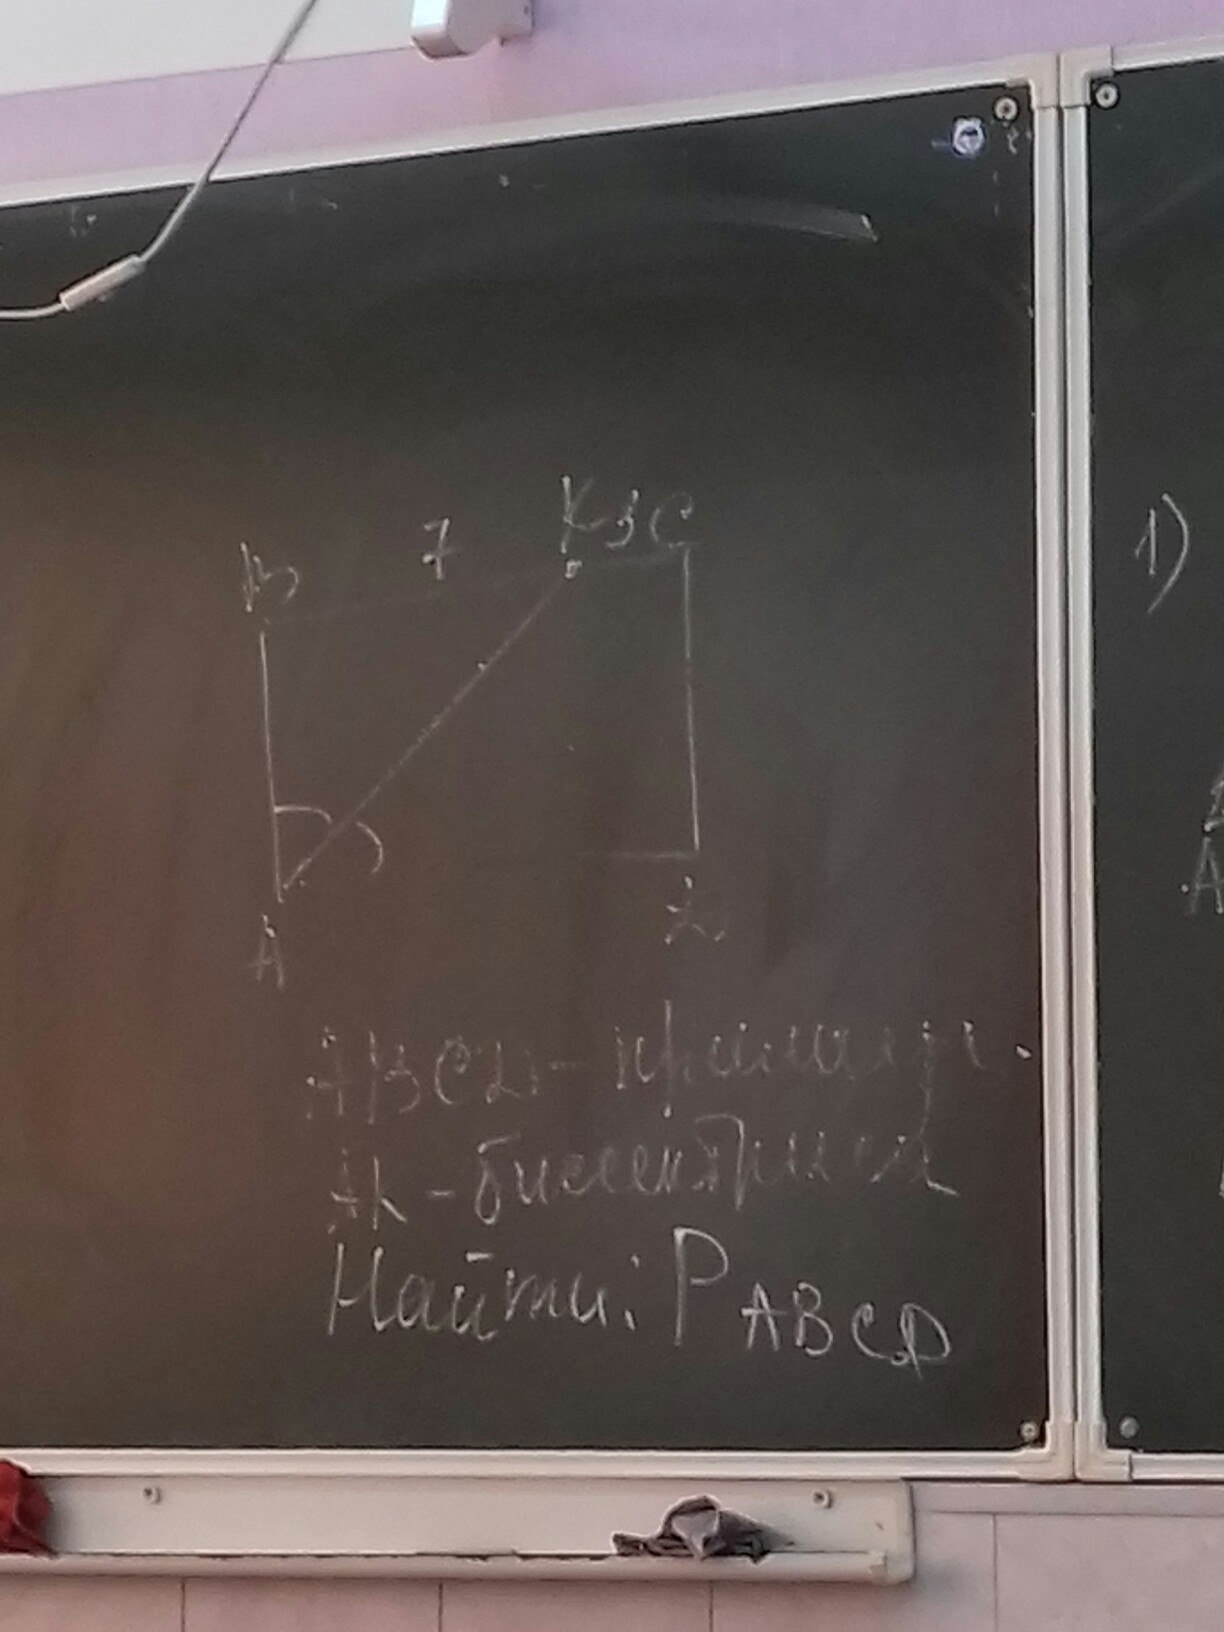 B 7 K 3 C
1)
A D
A
ABCD - прямоуг.
AK - биссектриса
Найти: P ABCD